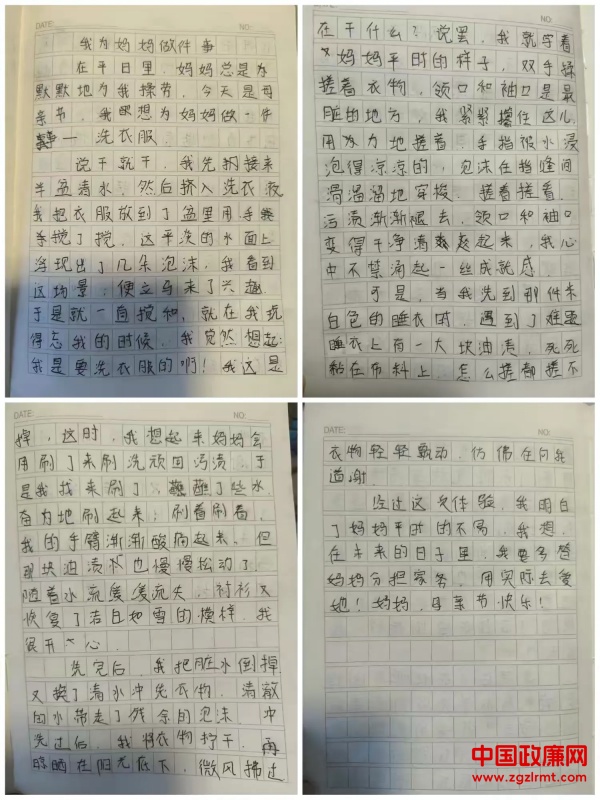 DATE: NO:
我为妈妈做件事
在平日里，妈妈总是为
默默地为我操劳，今天是母
亲节，我想为妈妈做一件
事——洗衣服。
说干就干，我先接来
半盆清水，然后挤入洗衣液
我把衣服放到了盆里用手
搅了搅，这平淡的水面上
浮现出了几朵泡沫，我看到
这场景，便立马来了兴趣
于是就一直搅和，就在我玩
得忘我的时候，我突然想起：
我是要洗衣服的啊！我这是
在干什么？说罢，我就学着
妈妈平时的样子，双手揉
搓着衣物，领口和袖口是最
脏的地方，我紧紧攥住这儿
用力地搓着，手指被水浸
泡得凉凉的，泡沫在指缝间
滑溜溜地穿梭。搓着搓着，
污渍渐渐褪去，领口和袖口
变得干净清爽起来，我心
中不禁涌起一丝成就感。
可是，当我洗到那件米
白色的睡衣时，遇到了难题
睡衣上有一大块油渍，死死
黏在布料上，怎么搓都搓不
DATE: NO:
掉，这时，我想起来妈妈会
用刷子来刷洗顽固污渍，于
是我找来刷子，蘸了些水，
奋力地刷起来，刷着刷着，
我的手臂渐渐酸痛起来，但
那块油渍也慢慢松动了，
随着水流缓缓流失，衬衫又
恢复了洁白如雪的模样，我
很开心。
洗完后，我把脏水倒掉，
又换了清水冲洗衣物，清澈
的水带走了残余的泡沫，冲
洗过后，我将衣物拧干，再
晾晒在阳光底下，微风拂过
DATE: NO:
衣物轻轻飘动，仿佛在向我
道谢。
经过这次体验，我明白
了妈妈平时的不易，我想，
在未来的日子里，我要多替
妈妈分担家务，用实际去爱
她！妈妈，母亲节快乐！
中国政廉网
www.zgzlrmt.com